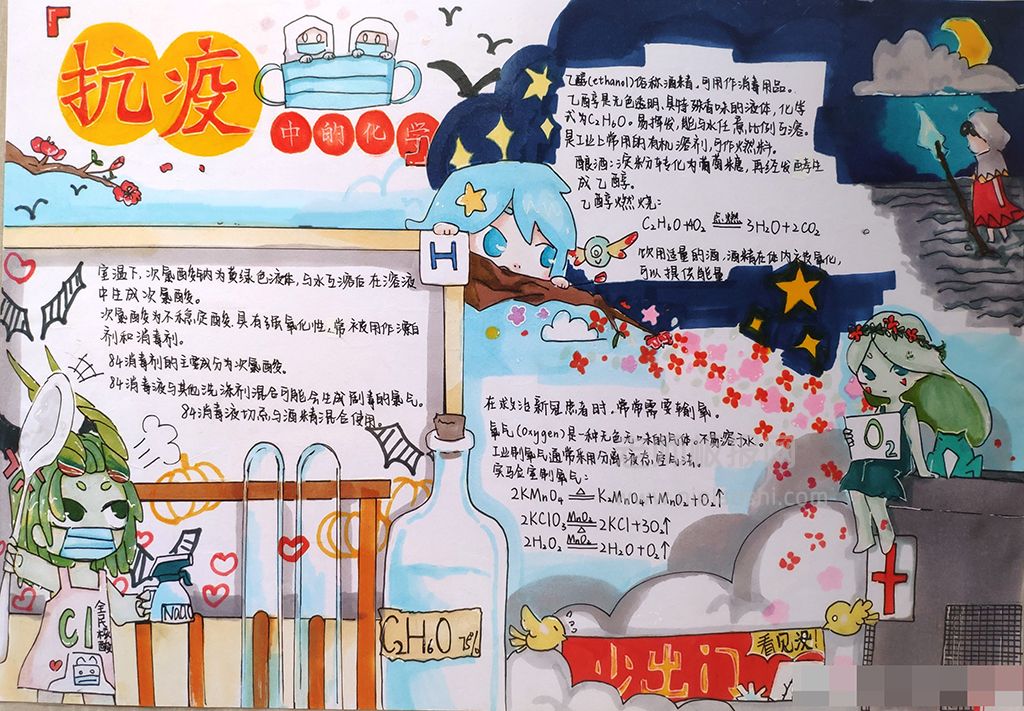 抗疫
中的化学
乙醇(ethanol)俗称酒精,可用作消毒用品。
乙醇是无色透明、具特殊香味的液体,化学
式为C₂H₆O。易挥发,能与水任意比例互溶。
是工业上常用的有机溶剂,可作燃料。
酿酒:淀粉转化为葡萄糖,再经发酵生
成乙醇。
乙醇燃烧:
C₂H₆O+4O₂ 点燃 3H₂O+2CO₂
饮用适量的酒,酒精在体内被氧化,
可以提供能量
H
室温下,次氯酸钠为黄绿色液体,与水互溶后在溶液
中生成次氯酸。
次氯酸为不稳定酸,具有强氧化性,常被用作漂白
剂和消毒剂。
84消毒剂的主要成分为次氯酸。
84消毒液与其他洗涤剂混合可能会生成剧毒的氯气。
84消毒液切忌与酒精混合使用。
在救治新冠患者时,常常需要输氧。
氧气(Oxygen)是一种无色无味的气体。不易溶于水。
工业制氧气通常采用分离液态空气法。
实验室制氧气:
2KMnO₄ △ K₂MnO₄+MnO₂+O₂↑
2KClO₃ MnO₂ △ 2KCl+3O₂↑
2H₂O₂ MnO₂ 2H₂O+O₂↑
O₂
Cl
全民核酸
C₂H₆O 75%
少出门
看见没!